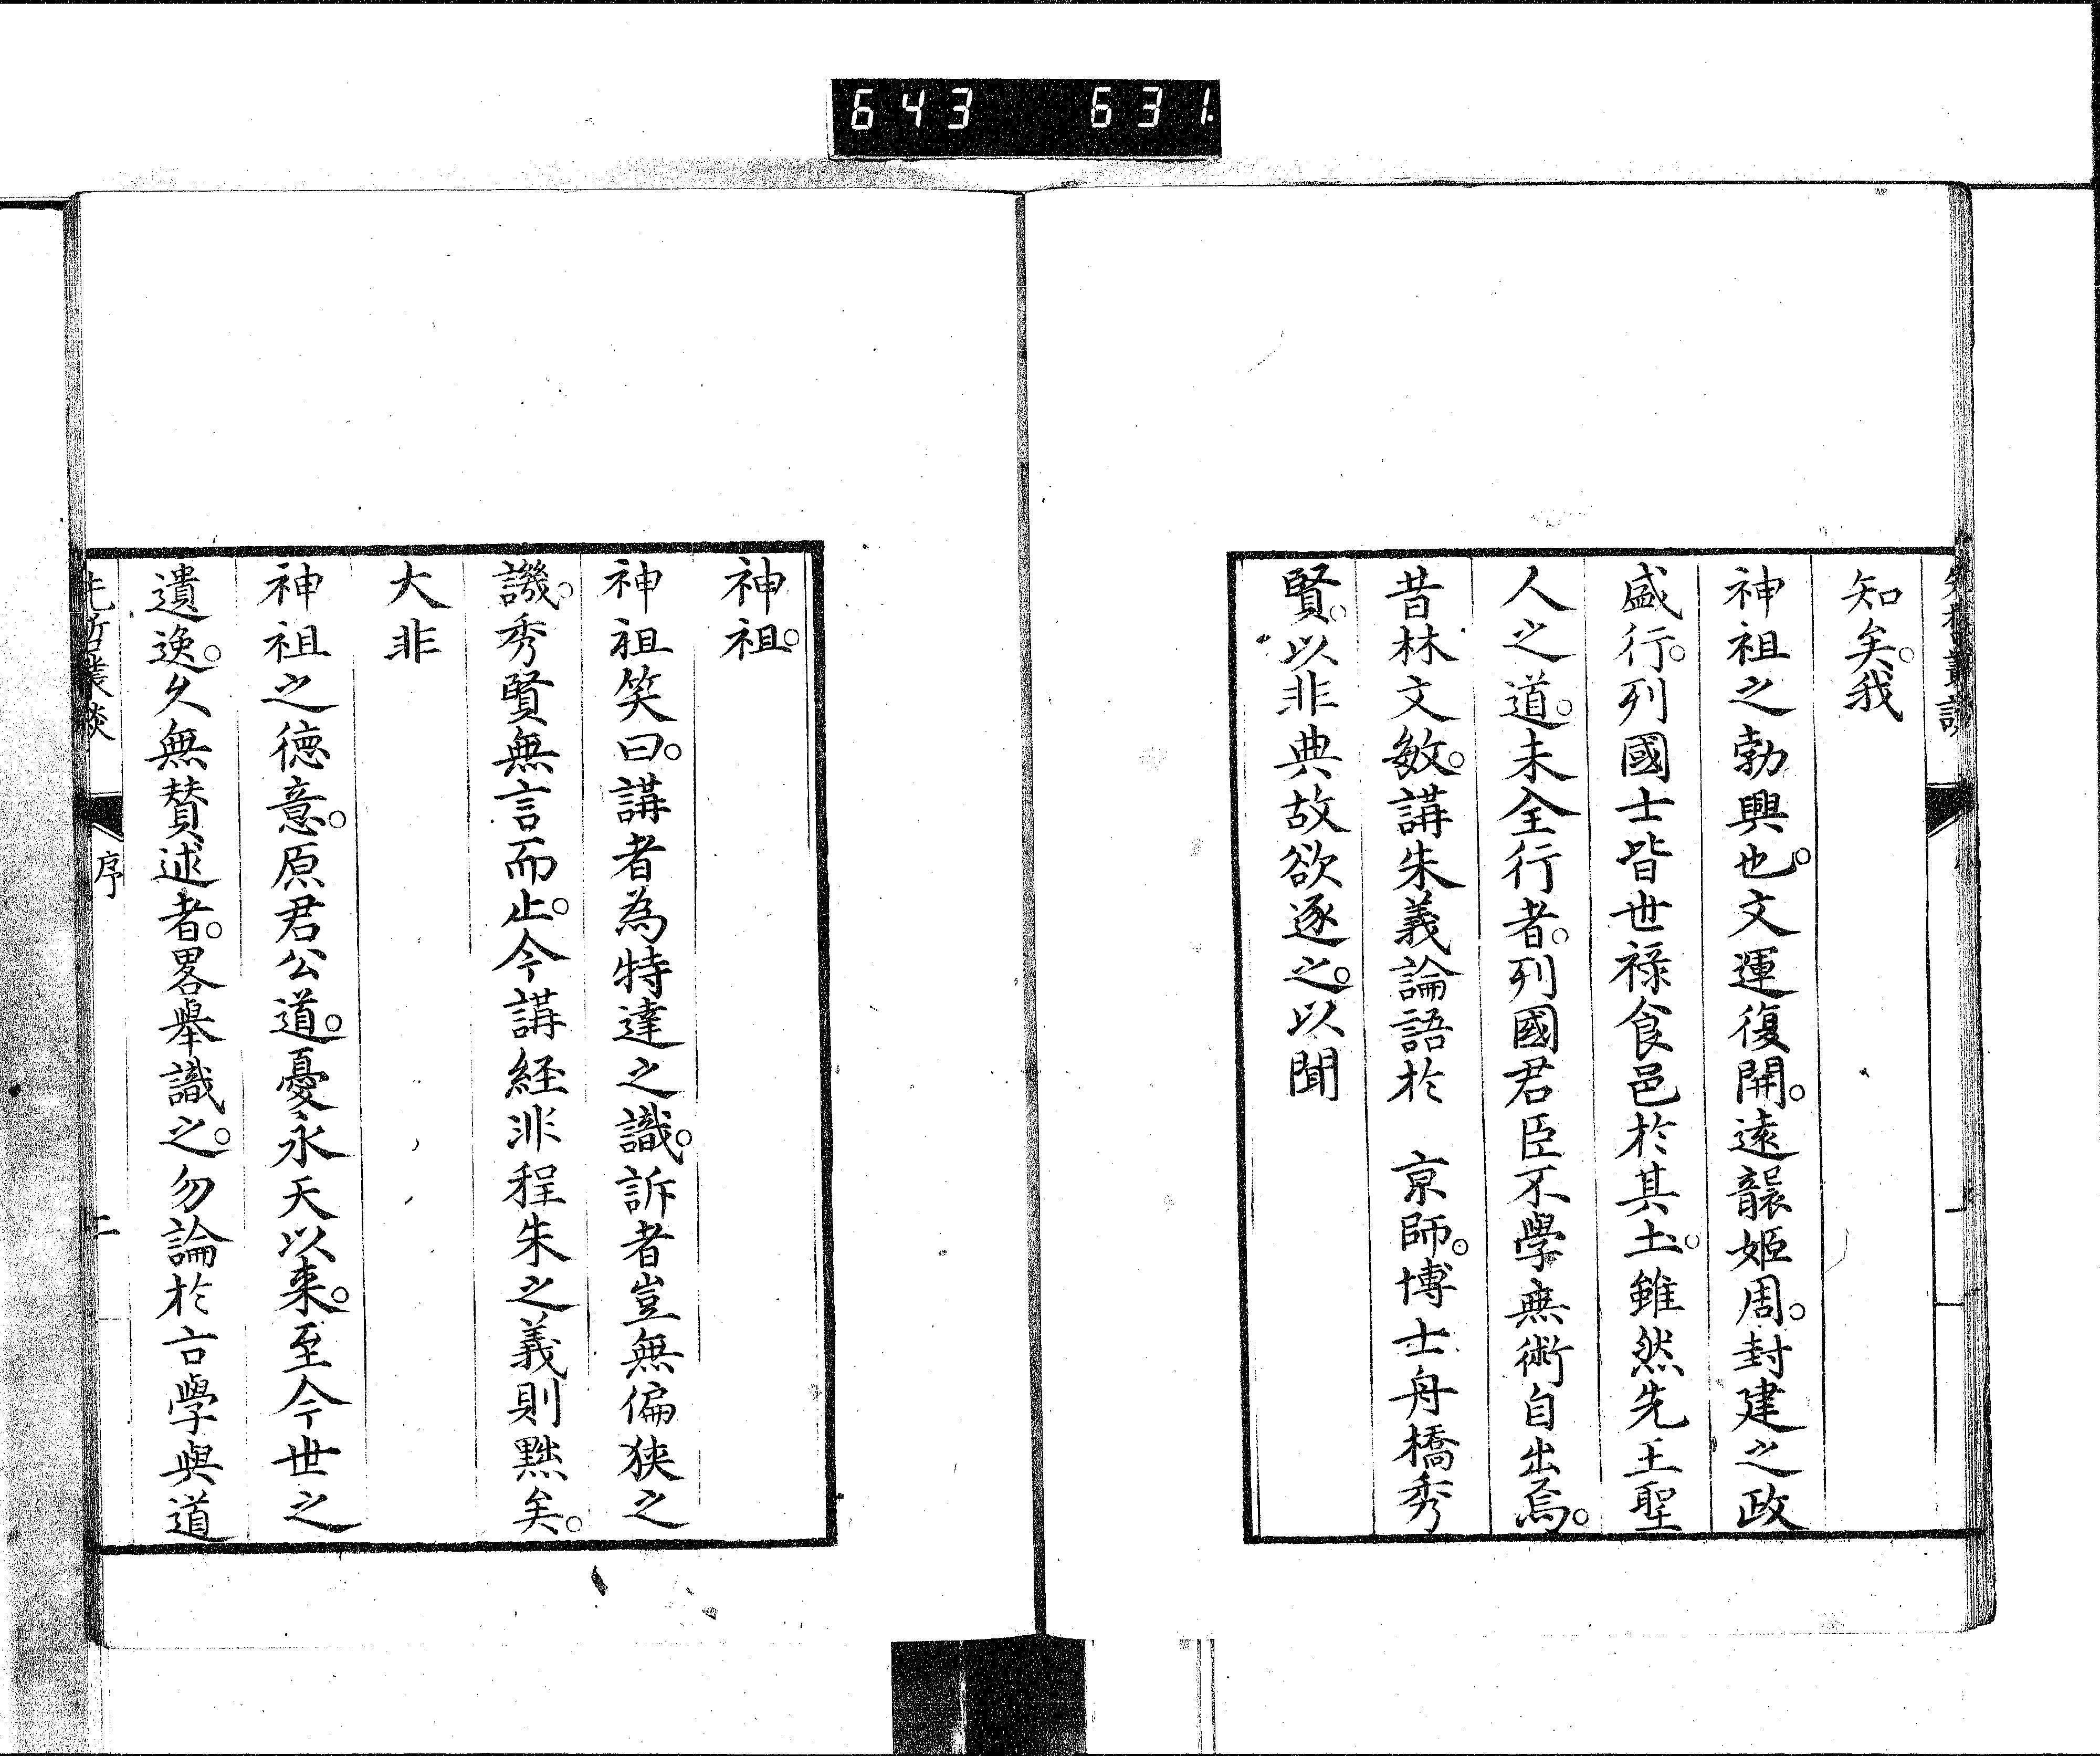 643 631
知矣。我
神祖之勃興也。文運復開。遠襲姬周。封建之政
盛行。列國士皆世祿食邑於其土。雖然先王聖
人之道。未全行者。列國君臣不學無術自出焉。
昔林文敏。講朱義論語於　京師。博士舟橋秀
賢。以非典故欲逐之。以聞
神祖。
神祖笑曰。講者為特達之識。訴者豈無偏狹之
譏。秀賢無言而止。今講経非程朱之義則黙矣。
大非
神祖之徳意。原君公道。憂永天以来。至今世之
遺逸。久無賛述者。畧舉識之。勿論於言學與道
先哲叢談
序
二